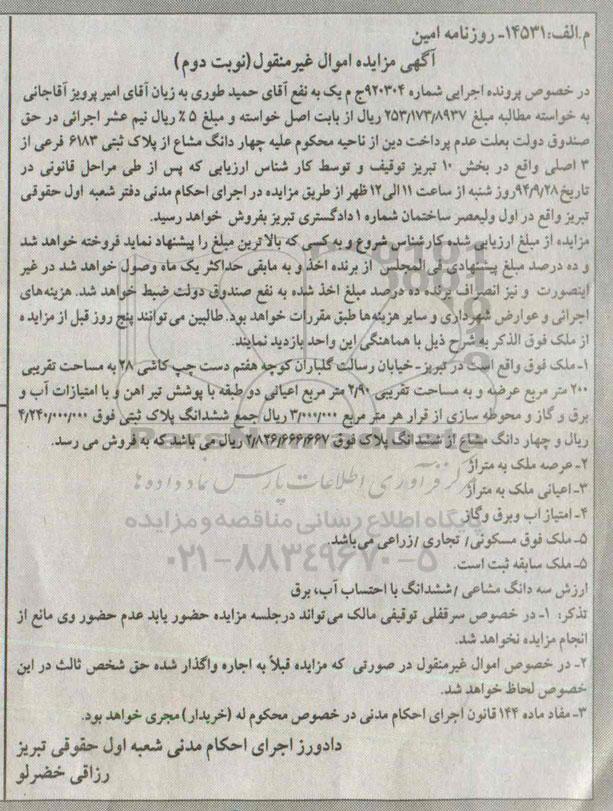 م.الف:۱۴۵۳۱- روزنامه امین
آگهی مزایده اموال غیرمنقول(نوبت دوم)
در خصوص پرونده اجرایی شماره ۹۲۰۳۰۴ج م یک به نفع آقای حمید طوری به زیان آقای امیر پرویز آقاجانی
به خواسته مطالبه مبلغ ۲۵۳/۱۷۳/۸۹۳۷ ریال از بابت اصل خواسته و مبلغ ۵٪ ریال نیم عشر اجرائی در حق
صندوق دولت بعلت عدم پرداخت دین از ناحیه محکوم علیه چهار دانگ مشاع از پلاک ثبتی ۶۱۸۳ فرعی از
۳ اصلی واقع در بخش ۱۰ تبریز توقیف و توسط کار شناس ارزیابی که پس از طی مراحل قانونی در
تاریخ۹۴/۹/۲۸روز شنبه از ساعت ۱۱الی۱۲ ظهر از طریق مزایده در اجرای احکام مدنی دفتر شعبه اول حقوقی
تبریز واقع در اول ولیعصر ساختمان شماره ۱ دادگستری تبریز بفروش خواهد رسید.
مزایده از مبلغ ارزیابی شده کارشناس شروع و به کسی که بالاترین مبلغ را پیشنهاد نماید فروخته خواهد شد
و ده درصد مبلغ پیشنهادی فی المجلس از برنده اخذ و به مابقی حداکثر یک ماه وصول خواهد شد در غیر
اینصورت و نیز انصراف برنده ده درصد مبلغ اخذ شده به نفع صندوق دولت ضبط خواهد شد. هزینه‌های
اجرائی و عوارض شهرداری و سایر هزینه‌ها طبق مقررات خواهد بود. طالبین می توانند پنج روز قبل از مزایده
از ملک فوق الذکر به شرح ذیل با هماهنگی این واحد بازدید نمایند.
۱- ملک فوق واقع است در تبریز- خیابان رسالت گلباران کوچه هفتم دست چپ کاشی ۲۸ به مساحت تقریبی
۲۰۰ متر مربع عرضه و به مساحت تقریبی ۲/۹۰ متر مربع اعیانی دو طبقه با پوشش تیر اهن و با امتیازات آب و
برق و گاز و محوطه سازی از قرار هر متر مربع ۳/۰۰۰/۰۰۰ ریال جمع ششدانگ پلاک ثبتی فوق ۴/۲۴۰/۰۰۰/۰۰۰
ریال و چهار دانگ مشاع از ششدانگ پلاک فوق ۲/۸۲۶/۶۶۶/۶۶۷ ریال می باشد که به فروش می رسد.
۲- عرصه ملک به متراژ
۳- اعیانی ملک به متراژ
۴- امتیاز اب وبرق وگاز
۵- ملک فوق مسکونی/ تجاری /زراعی می‌باشد.
۵- ملک سابقه ثبت است.
ارزش سه دانگ مشاعی /ششدانگ با احتساب آب، برق
تذکر: ۱- در خصوص سرقفلی توقیفی مالک می‌تواند درجلسه مزایده حضور یابد عدم حضور وی مانع از
انجام مزایده نخواهد شد.
۲- در خصوص اموال غیرمنقول در صورتی که مزایده قبلاً به اجاره واگذار شده حق شخص ثالث در این
خصوص لحاظ خواهد شد.
۳- مفاد ماده ۱۴۴ قانون اجرای احکام مدنی در خصوص محکوم له (خریدار) مجری خواهد بود.
دادورز اجرای احکام مدنی شعبه اول حقوقی تبریز
رزاقی خضرلو
مرکز فرآوری اطلاعات پارس نماد داده‌ها
پایگاه اطلاع رسانی مناقصه و مزایده
۰۲۱-۸۸۳۴۹۶۷۰-۵